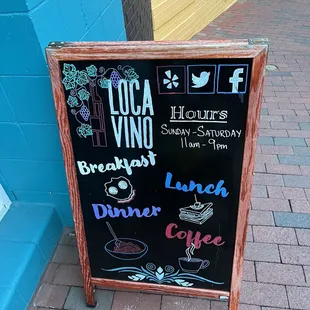 LOCA
VINO
Hours
Sunday-Saturday
11am-9pm
Breakfast
Lunch
Dinner
Coffee